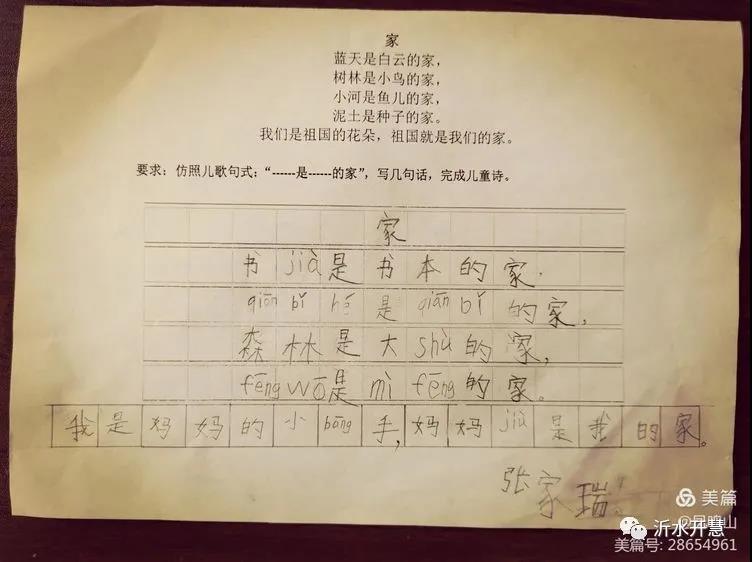 家
蓝天是白云的家，
树林是小鸟的家，
小河是鱼儿的家，
泥土是种子的家。
我们是祖国的花朵，祖国就是我们的家。
要求：仿照儿歌句式：“------是------的家”，写几句话，完成儿童诗。
家
书jià是书本的家.
qiān bǐ hé 是 qiān bǐ 的家，
森林是大shù的家，
fēng wō是mì fēng的家。
我是妈妈的小bāng手，妈妈jiā是我的家。
张家瑞
美篇
沂水开慧
美篇号: 28654961